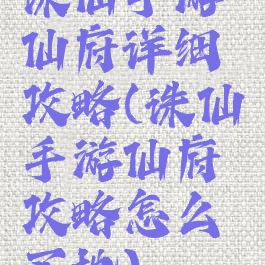 诛仙手游
仙府详细
攻略(诛仙
手游仙府
攻略怎么